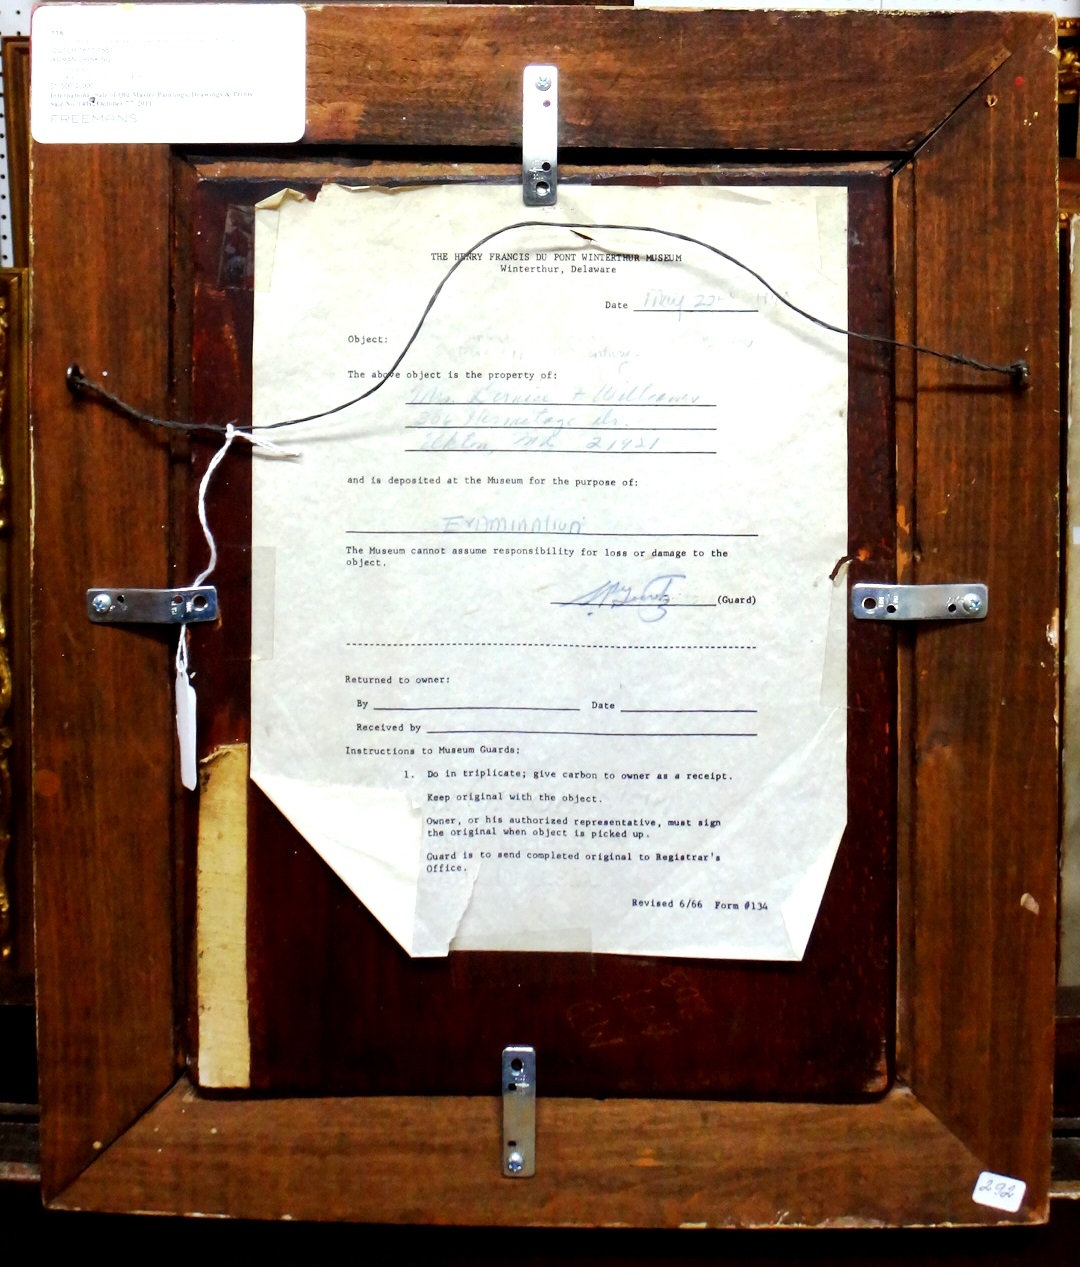 International Sale of Old Master Paintings, Drawings & Prints
FREEMANS
THE HENRY FRANCIS DU PONT WINTERTHUR MUSEUM
Winterthur, Delaware
Date May 22nd
Object:
The above object is the property of:
Mrs. Williams
306 Hermitage Dr.
Elkton, Md 21921
and is deposited at the Museum for the purpose of:
EXAMINATION
The Museum cannot assume responsibility for loss or damage to the
object.
(Guard)
Returned to owner:
By Date
Received by
Instructions to Museum Guards:
1. Do in triplicate; give carbon to owner as a receipt.
Keep original with the object.
Owner, or his authorized representative, must sign
the original when object is picked up.
Guard is to send completed original to Registrar's
Office.
Revised 6/66 Form #134
292